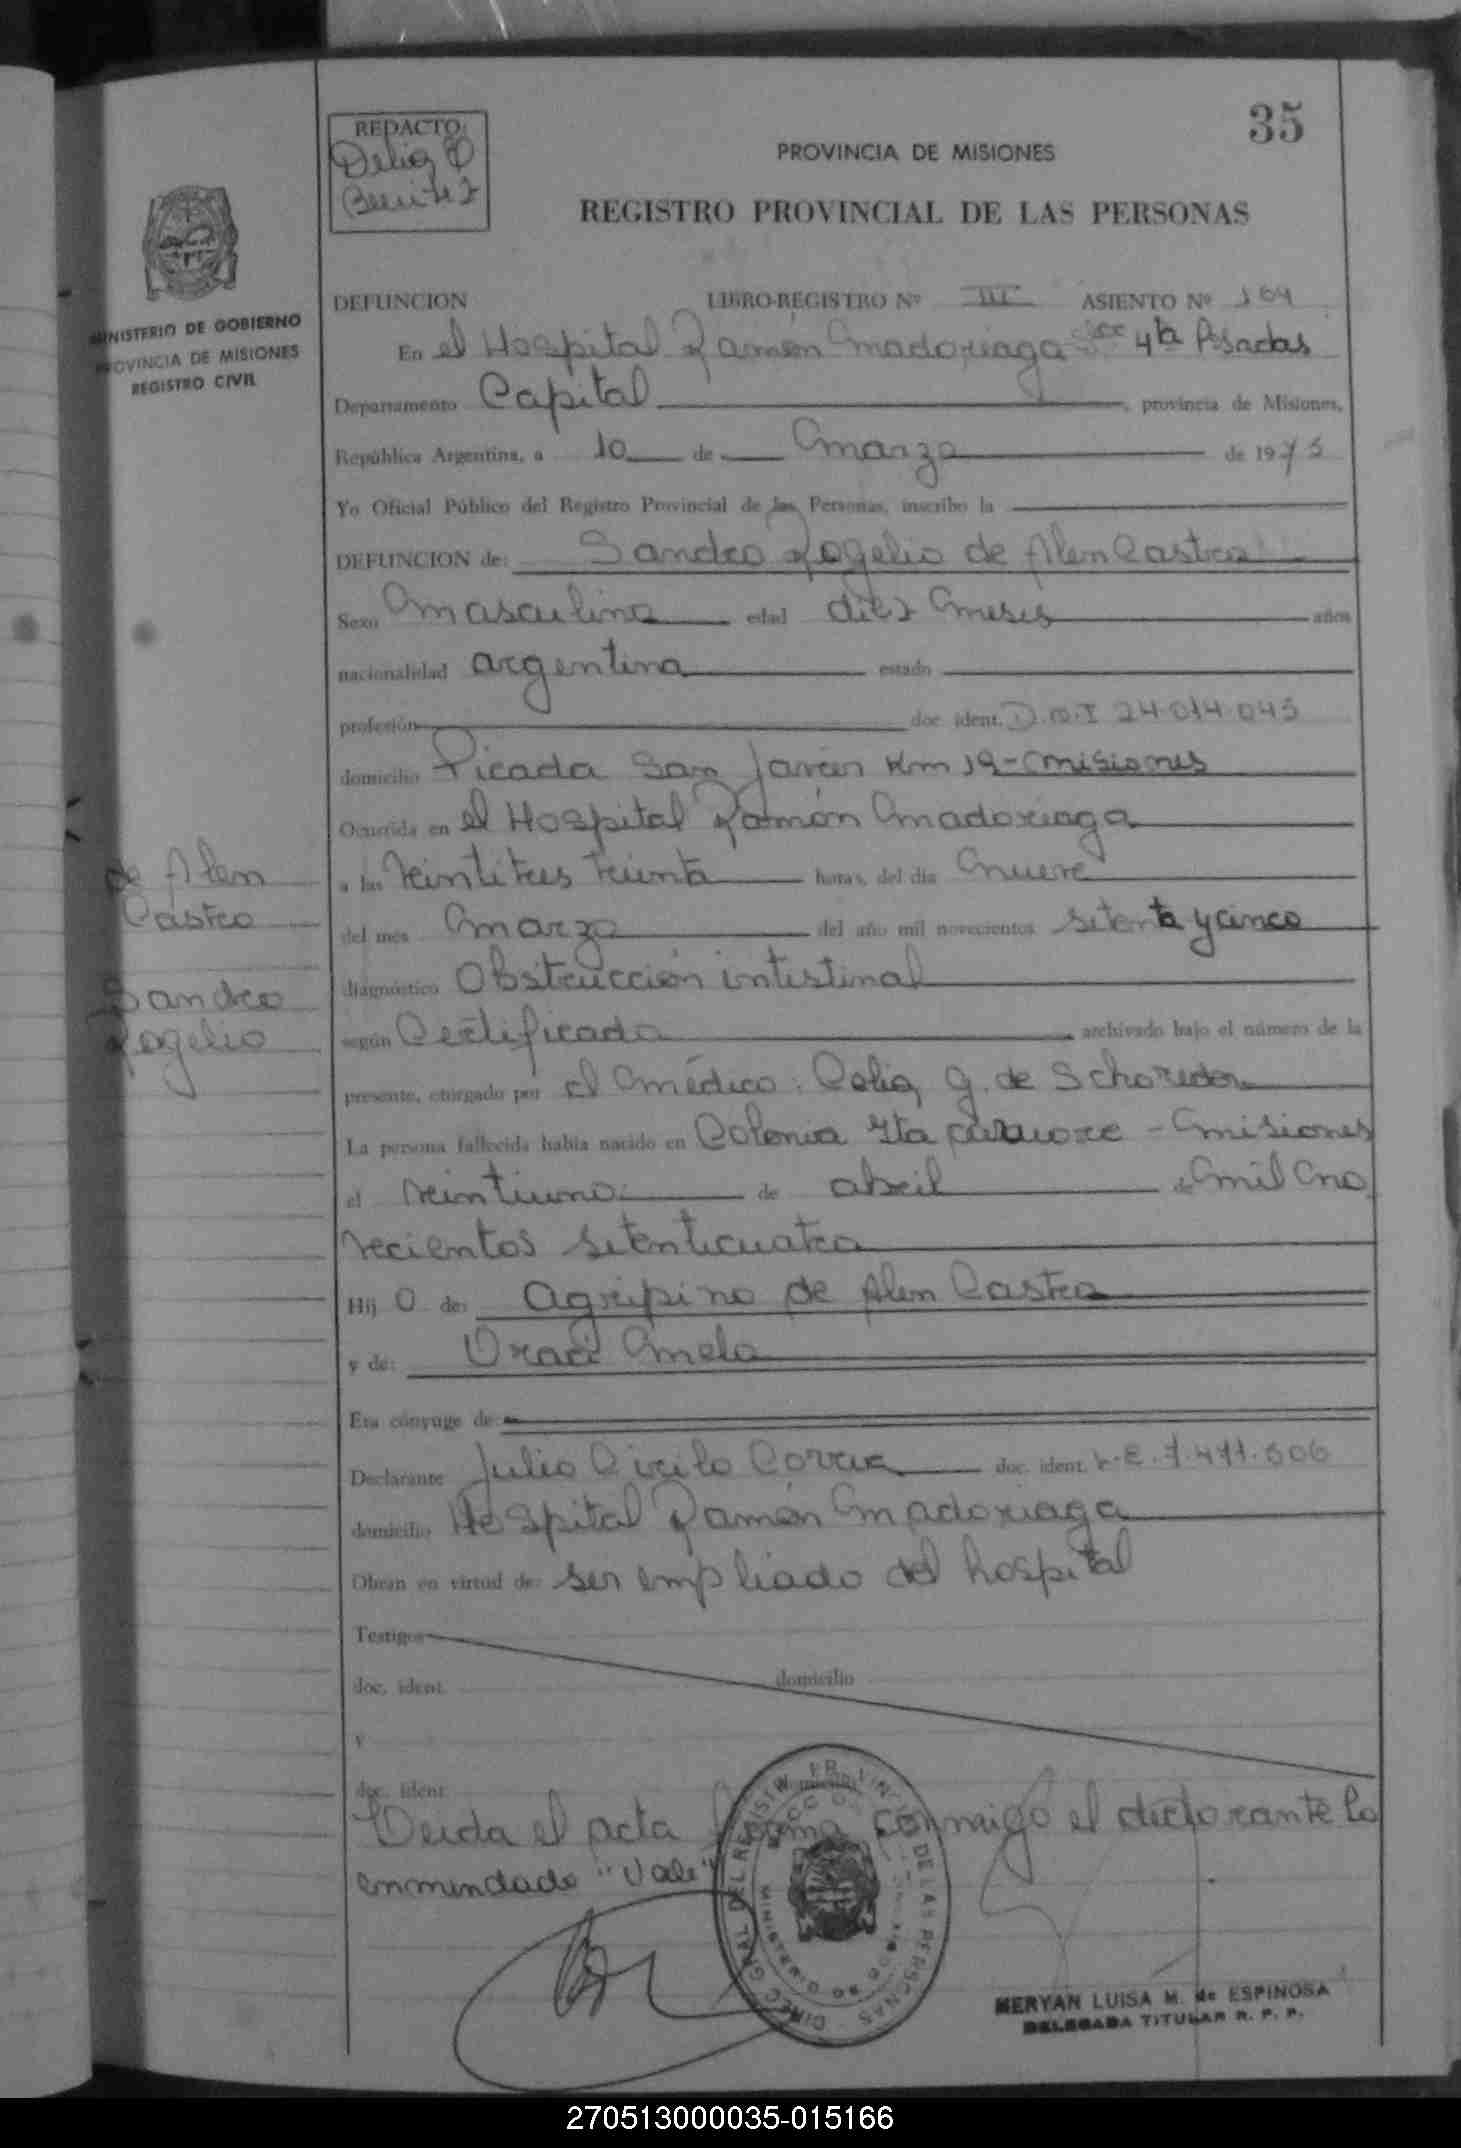 35
REDACTO:
Delia
Benitez
PROVINCIA DE MISIONES
REGISTRO PROVINCIAL DE LAS PERSONAS
MINISTERIO DE GOBIERNO
PROVINCIA DE MISIONES
REGISTRO CIVIL
DEFUNCION LIBRO-REGISTRO Nº III ASIENTO Nº 164
En el Hospital Ramón Madoriaga 4ta Posadas
Departamento Capital, provincia de Misiones,
República Argentina, a 10 de Marzo de 1975
Yo Oficial Público del Registro Provincial de las Personas, inscribo la
DEFUNCION de: Sandro Rogelio de Alen Castro
Sexo Masculino edad diez Meses años
nacionalidad argentina estado
profesión doc. ident. D.N.I 24.014.045
domicilio Picada San Javier Km 19 - Misiones
Ocurrida en el Hospital Ramón Madoriaga
a las veintitres treinta horas, del día Nueve
del mes Marzo del año mil novecientos setenta y cinco
diagnóstico Obstrucción intestinal
según Certificado archivado bajo el número de la
presente, otorgado por el Médico: Celia G. de
La persona fallecida había nacido en Colonia - Misiones
el veintiuno de abril de Mil No
vecientos setenticuatro
Hij o de: Agripino de Alen Castro
y de: Melo
Era cónyuge de:
Declarante Julio Cirilo doc. ident. L.E. 7.471.606
domicilio Hospital Ramón Madoriaga
Obran en virtud de: ser empliado del hospital
Testigos
doc. ident. domicilio
y
doc. ident. domicilio
Leida el acta firma conmigo el declarante lo
enmendado "Vale"
de Alen
Castro
Sandro
Rogelio
DIREC. GRAL. DEL REGISTRO PROVINCIAL DE LAS PERSONAS
MINISTERIO DE GOBIERNO
MERYAN LUISA M. de ESPINOSA
DELEGADA TITULAR R. P. P.
270513000035-015166